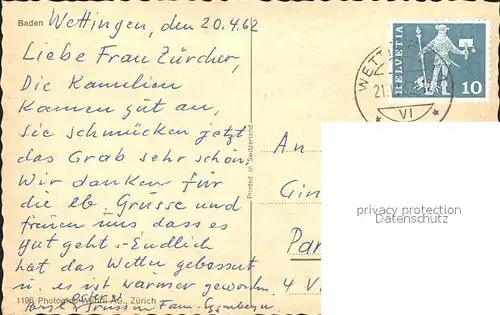 Baden
Wettingen, den 20.4.62
Liebe Frau Zürcher,
Die Kamelien
kamen gut an,
sie schmücken jetzt
das Grab sehr schön.
Wir danken für
die lb. Grüsse und
freuen uns dass es
gut geht. Endlich
hat das Wetter gebessert
u. es ist wärmer geworden.
Herzl. Grüsse Fam.
1196 Photoglob-Wehrli AG., Zürich
Printed in Switzerland
HELVETIA
10
WETT
21.
VI
An
Par
4 V
privacy protection
Datenschutz